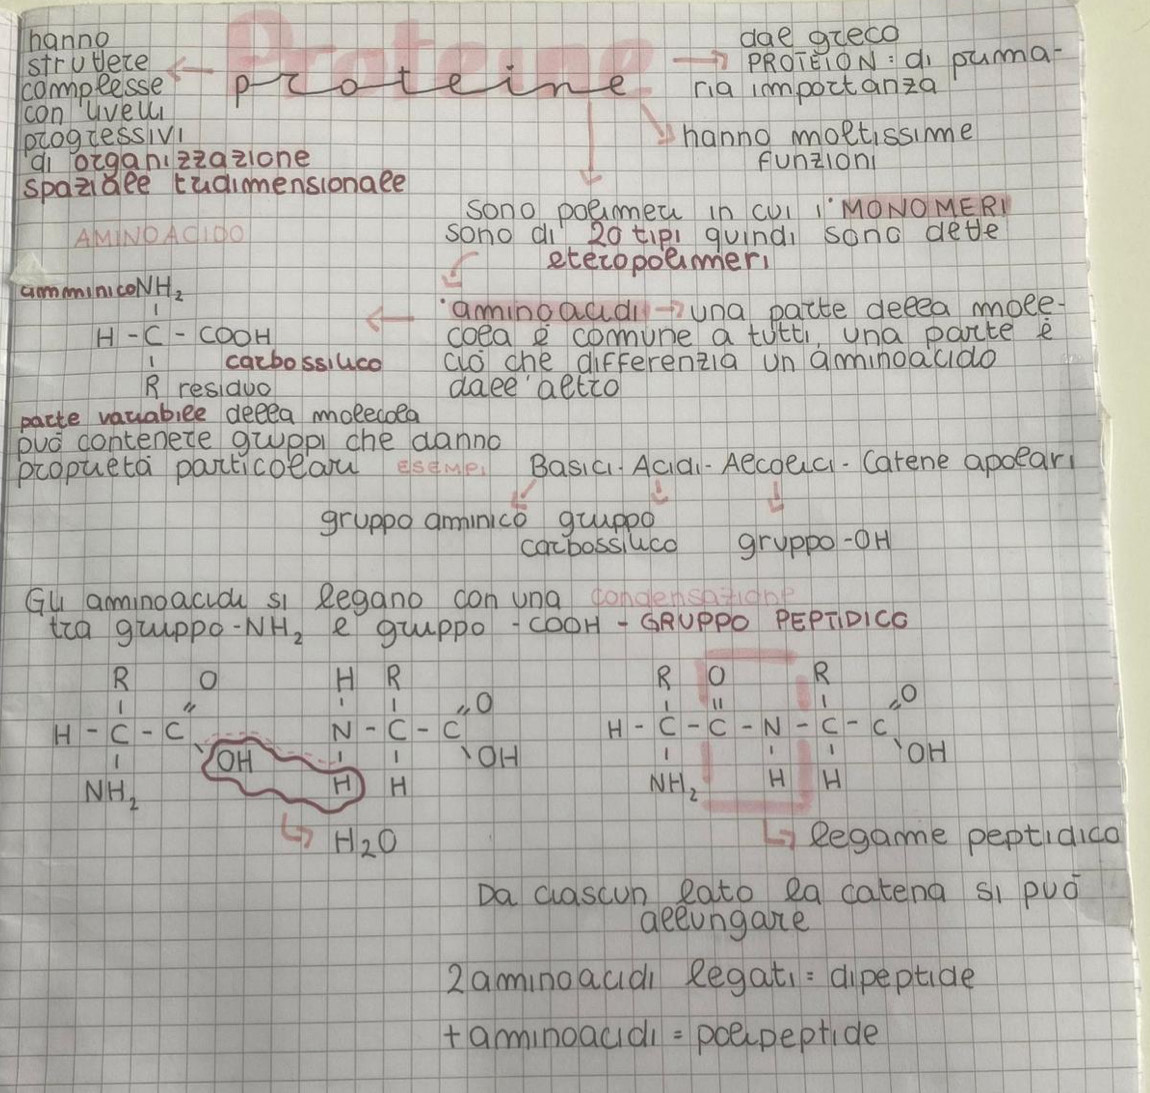 Proteine
proteine
hanno
strutture
complesse
con livelli
progressivi
di organizzazione
spaziale tridimensionale
dal greco
PROTEION: di prima-
ria importanza
hanno moltissime
funzioni
sono polimeri in cui i MONOMERI
sono di 20 tipi quindi sono dette
eteropolimeri
AMINOACIDO
amminico NH2
H - C - COOH
carbossilico
R residuo
aminoacidi → una parte della mole-
cola è comune a tutti, una parte è
ciò che differenzia un aminoacido
dall'altro
parte variabile della molecola
può contenere gruppi che danno
proprietà particolari ESEMPI Basici - Acidi - Alcolici - Catene apolari
gruppo aminico gruppo
carbossilico gruppo -OH
Gli aminoacidi si legano con una condensazione
tra gruppo -NH2 e gruppo -COOH - GRUPPO PEPTIDICO
R O H R R O R
O O
H - C - C N - C - C H - C - C - N - C - C
OH OH OH
NH2 H H NH2 H H
H2O
legame peptidico
Da ciascun lato la catena si può
allungare
2 aminoacidi legati = dipeptide
+ aminoacidi = polipeptide